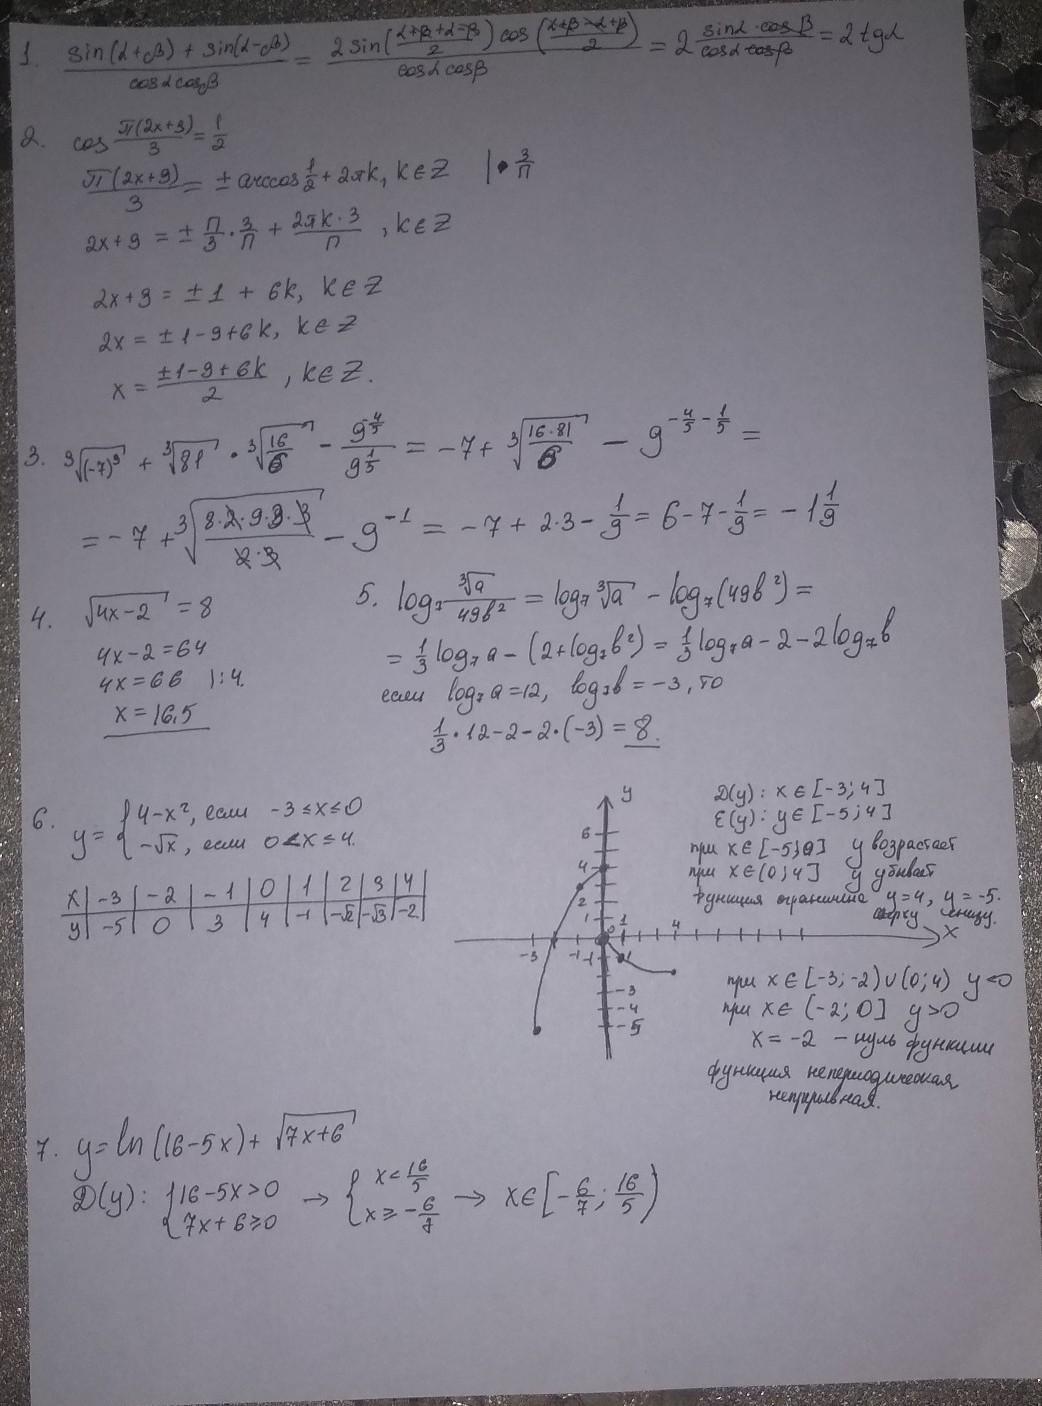 1. (sin(α+β) + sin(α-β))/(cosα cosβ) = (2 sin((α+β+α-β)/2) cos((α+β-α+β)/2))/(cosα cosβ) = 2 (sinα · cosβ)/(cosα cosβ) = 2 tgα
2. cos π(2x+9)/3 = 1/2
π(2x+9)/3 = ± arccos 1/2 + 2πk, k∈Z | · 3/π
2x+9 = ± π/3 · 3/π + (2πk·3)/π , k∈Z
2x+9 = ±1 + 6k, k∈Z
2x = ±1-9+6k, k∈Z
x = (±1-9+6k)/2 , k∈Z.
3. ∛(-7)³ + ∛81 · ∛(16/6) - 9^(-4/5)/9^(1/5) = -7 + ∛(16·81/6) - 9^(-4/5-1/5) =
= -7 + ∛((8·2·9·3·3)/(2·3)) - 9⁻¹ = -7 + 2·3 - 1/9 = 6-7-1/9 = -1 1/9
4. √(4x-2) = 8
4x-2=64
4x=66 |:4.
x=16,5
5. log₇ ∛a/(49b²) = log₇ ∛a - log₇(49b²) =
= 1/3 log₇ a - (2+log₇b²) = 1/3 log₇a - 2 - 2log₇b
если log₇a=12, log₇b=-3, то
1/3 · 12-2-2·(-3) = 8.
6. y = { 4-x², если -3≤x≤0
-√x, если 0<x≤4.
x | -3 | -2 | -1 | 0 | 1 | 2 | 3 | 4
y | -5 | 0 | 3 | 4 | -1 | -√2 | -√3 | -2
y
6
4
2
1
1
0
4
x
-3
-1
-1
1
-3
-4
-5
D(y): x∈[-3;4]
E(y): y∈[-5;4]
при x∈[-5;0] y возрастает
при x∈(0;4] y убывает
Функция ограничена y=4, y=-5.
сверху снизу.
при x∈[-3;-2)∪(0;4) y<0
при x∈(-2;0] y>0
x=-2 - нуль функции
функция непериодическая
непрерывная.
7. y=ln(16-5x)+√(7x+6)
D(y): { 16-5x>0 → { x<16/5 → x∈[-6/7; 16/5)
7x+6≥0 x≥-6/7